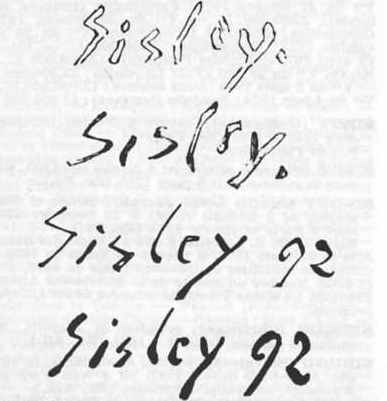 Sisley.
Sisley.
Sisley 92
Sisley 92